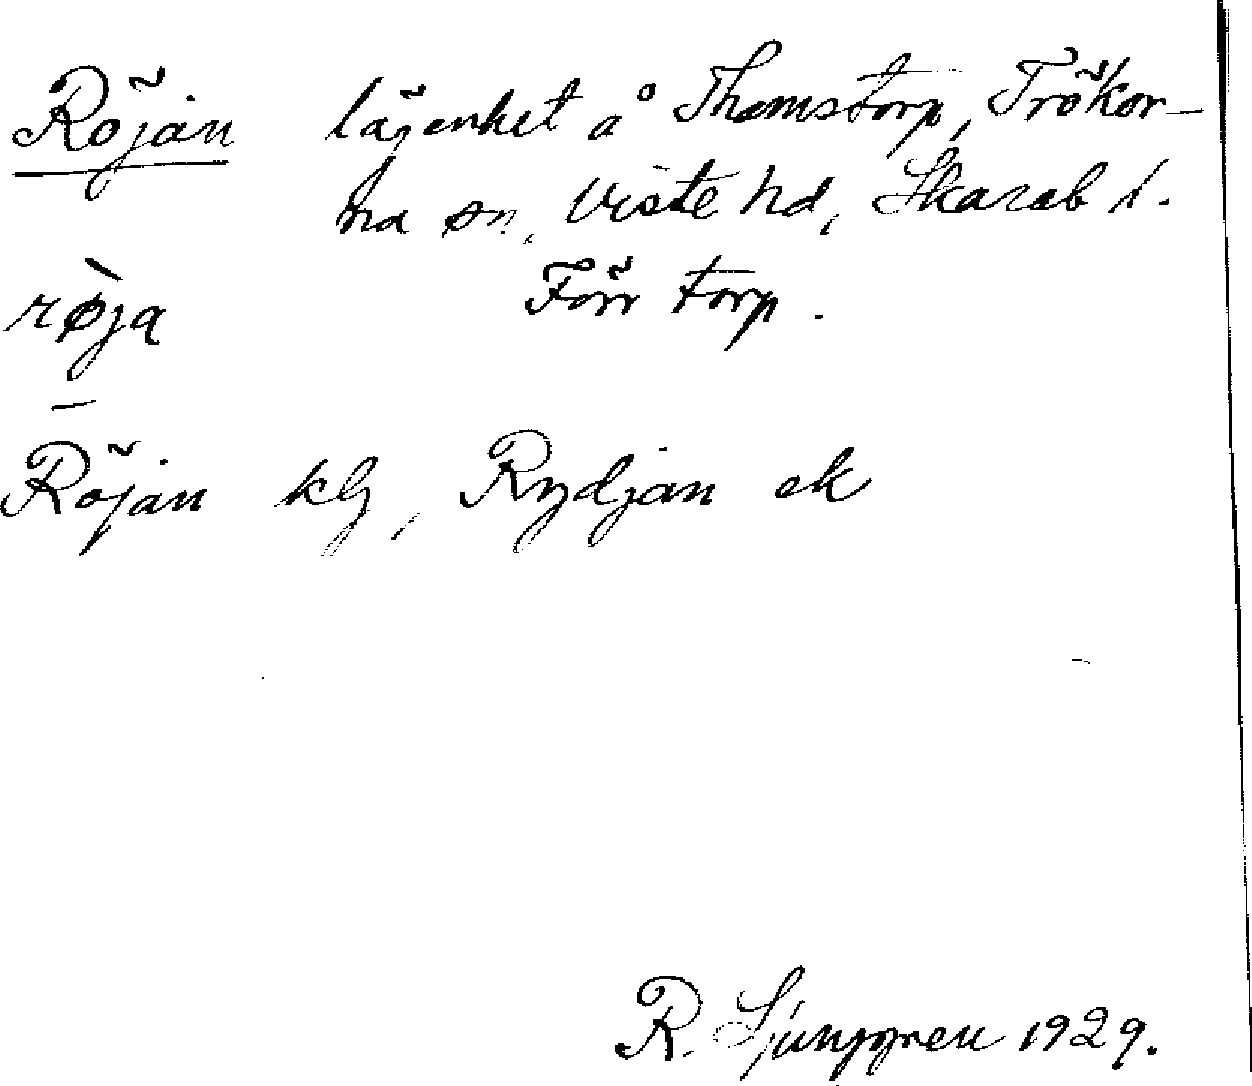 Röjan lägenhet å Thomstorp, Trökor-
na sn, Viste hd, Skarab l.
rø̀ja Förr torp.
Röjan klj, Rydjan ek
R. Ljunggren 1929.